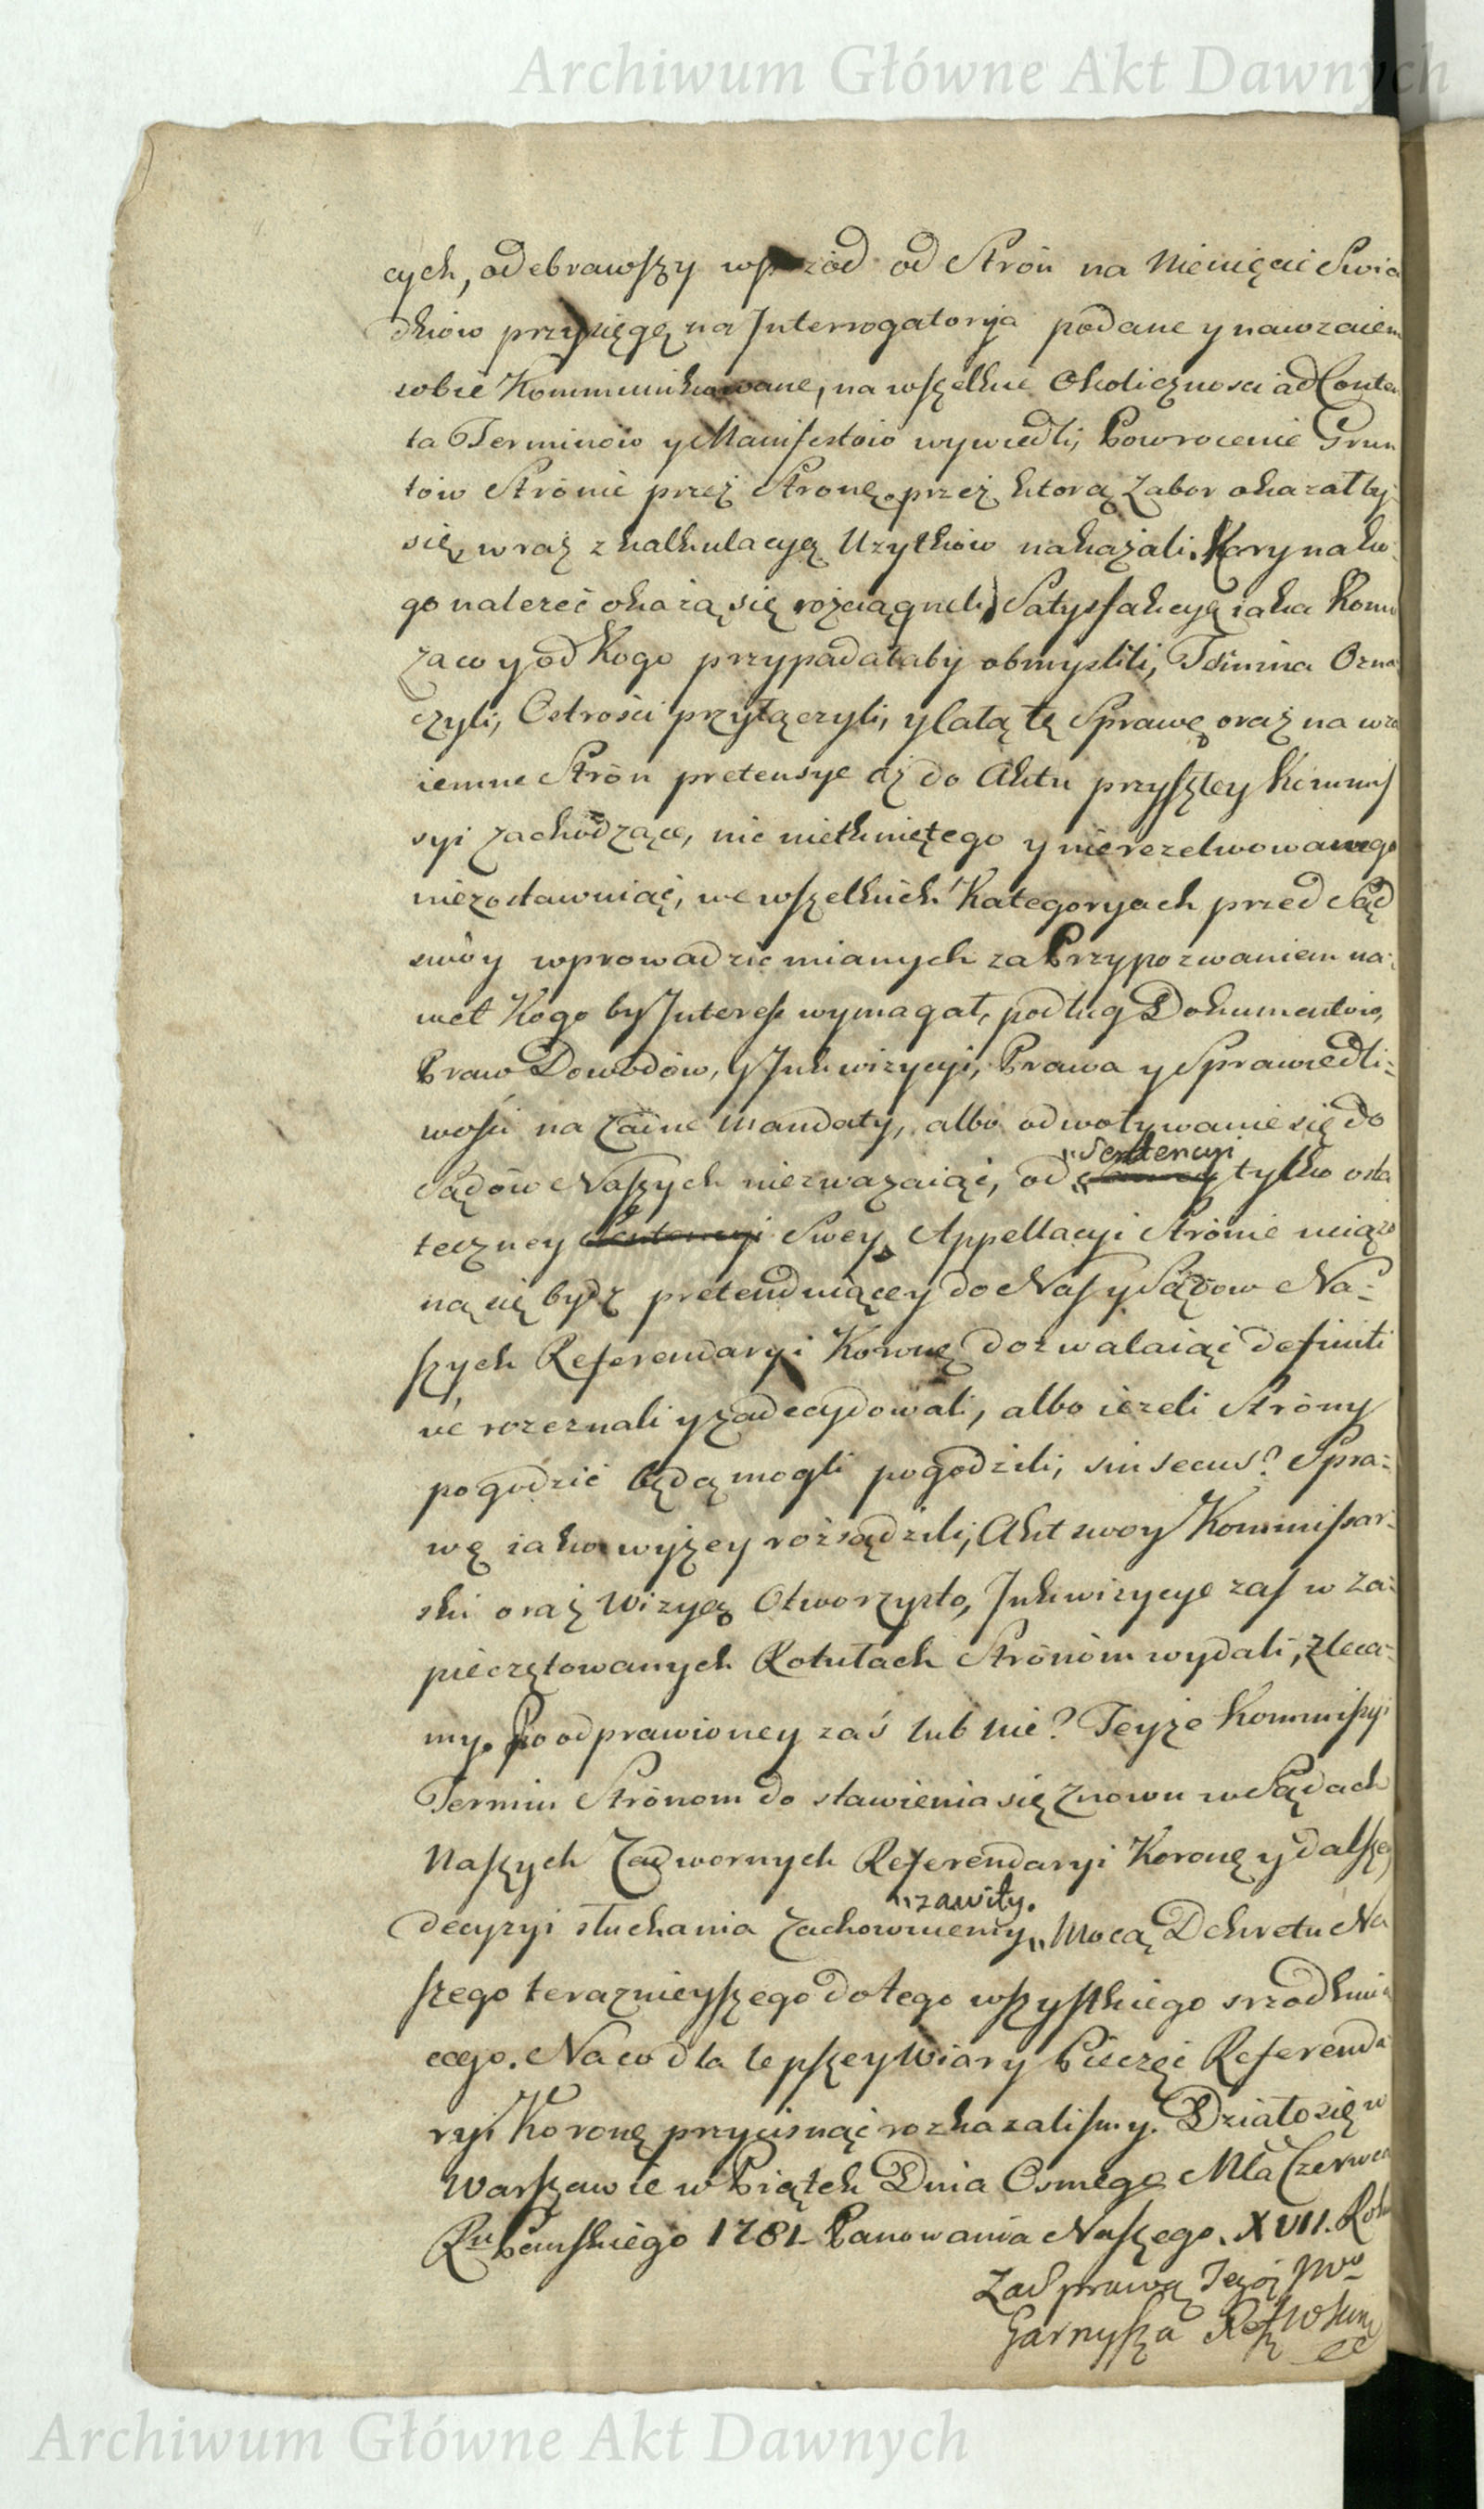 Archiwum Główne Akt Dawnych
cych, odebrawszy wprzód od Strón na Nieuięcie Swia
dków przysięgę na Interrogatorya podane y nawzaiem
sobie Kommunikowane, na wszelkie Okolicznosci ad Conten
ta Terminow y Manifestow wywiedli, Powrocenie Grun
tów Strónie przez Stronę, przez ktorą Zabor okazałby
się, wraz z kalkulacyą Uzytków nakazali. Kary na ko-
go nalezeć okażą się rozciągneli, Satysfakcyą iaka Komu
za co y od Kogo przypadałaby obmyslili, Termina Ozna
czyli, Ostrości przyłączyli, y całą tę Sprawę oraz na wza
iemne Strón pretensye aż do Aktu przyszłey Kommis
syi zachodzące, nic nietkniętego y nierezelwowanego
niezostawuiąc, we wszelkich Kategoryach przed Sąd
swóy wprowadzic mianych za Przypozwaniem na-
wet Kogo by Interess wymagał, podług Dokumentów,
Praw Dowodów, y Inkwizycyi, Prawa y Sprawiedli=
wości na żadne Mandaty, albo odwoływanie się do
Sądów Naszych niezwazaiąc, od Sentencyi tylko osta
teczney Sentencyi Swey, Appellacyi Strónie uciązo
ną się bydz pretenduiącey do Nas y Sądow Na=
szych Referendaryi Koronę dozwalaiąc definiti
ve rozeznali y zadecydowali, albo iezeli Stróny
pogodzić będą mogli pogodzili, sin secus? Spra=
wę iako wyżey rozsądzili, Akt swoy Kommissar=
ski oraz Wizyą Otworzysto, Inkwizycye zas w Za=
pieczętowanych Rotułach Strónóm wydali, zleca=
my. Po odprawioney zaś lub nie? Teyże Kommissyi
Termin Strónom do stawienia się znowu w Sądach
Naszych Zadwornych Referendaryi Koronę y dalszey
zawity.
decyzyi słuchania Zachowuiemy, Mocą Dekretu Na
szego teraznieyszego do tego wszystkiego srzodkuią
cego. Na co dla lepszey Wiary Pieczęć Referenda
ryi Koronę przycisnąć rozkazalismy. Działo się w
Warszawie w Piątek Dnia Osmego Mca Czerwca
Ru Pańskiego 1781 Panowania Naszego. XVII. Roku
Za Sprawą Tegoż JWo
Garnysza
Archiwum Główne Akt Dawnych